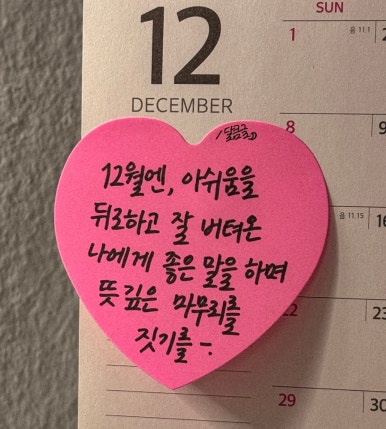 12
DECEMBER
SUN
1
음 11.1
8
12월엔, 아쉬움을
뒤로하고 잘 버텨온
나에게 좋은 말을 하며
뜻깊은 마무리를
짓기를 -.
음 11.15
16
22
23
29
30